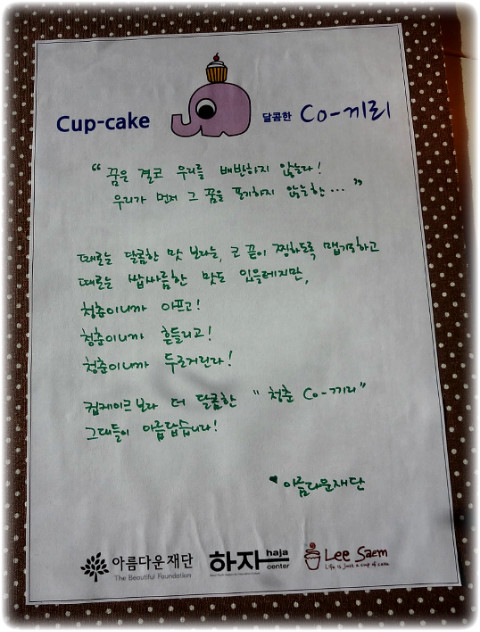 Cup-cake 달콤한 Co-끼리
“ 꿈은 결코 우리를 배반하지 않는다!
우리가 먼저 그 꿈을 포기하지 않는한... ”
때로는 달콤한 맛 보다는, 코 끝이 찡하도록 맵기도하고
때로는 쌉싸름한 맛도 있을테지만,
청춘이니까 아프고!
청춘이니까 흔들리고!
청춘이니까 두근거린다!
컵케이크보다 더 달콤한 “ 청춘 Co-끼리”
그대들이 아름답습니다!
♥ 아름다운재단
아름다운재단 하자 haja center Lee Saem
The Beautiful Foundation Life is just a cup of cake